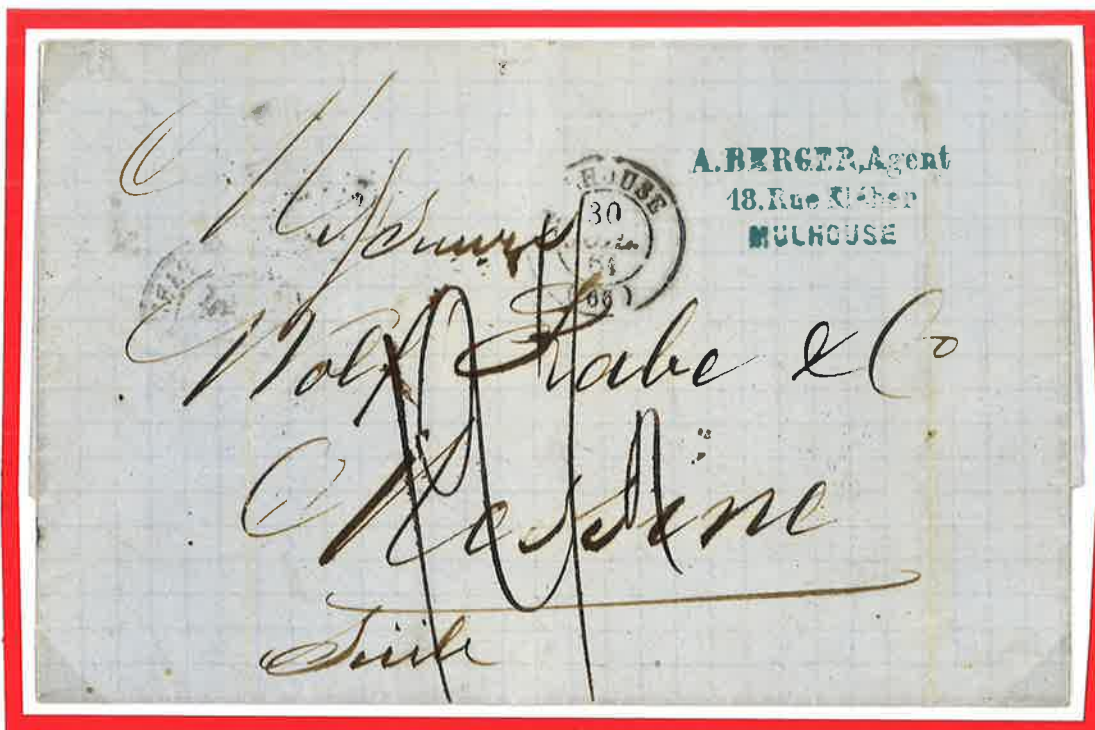 A. BERGER, Agent
18. Rue Kléber
MULHOUSE
HOUSE
30
(66)
Messieurs
Wolf Rabe & Co
Messine
Sicile